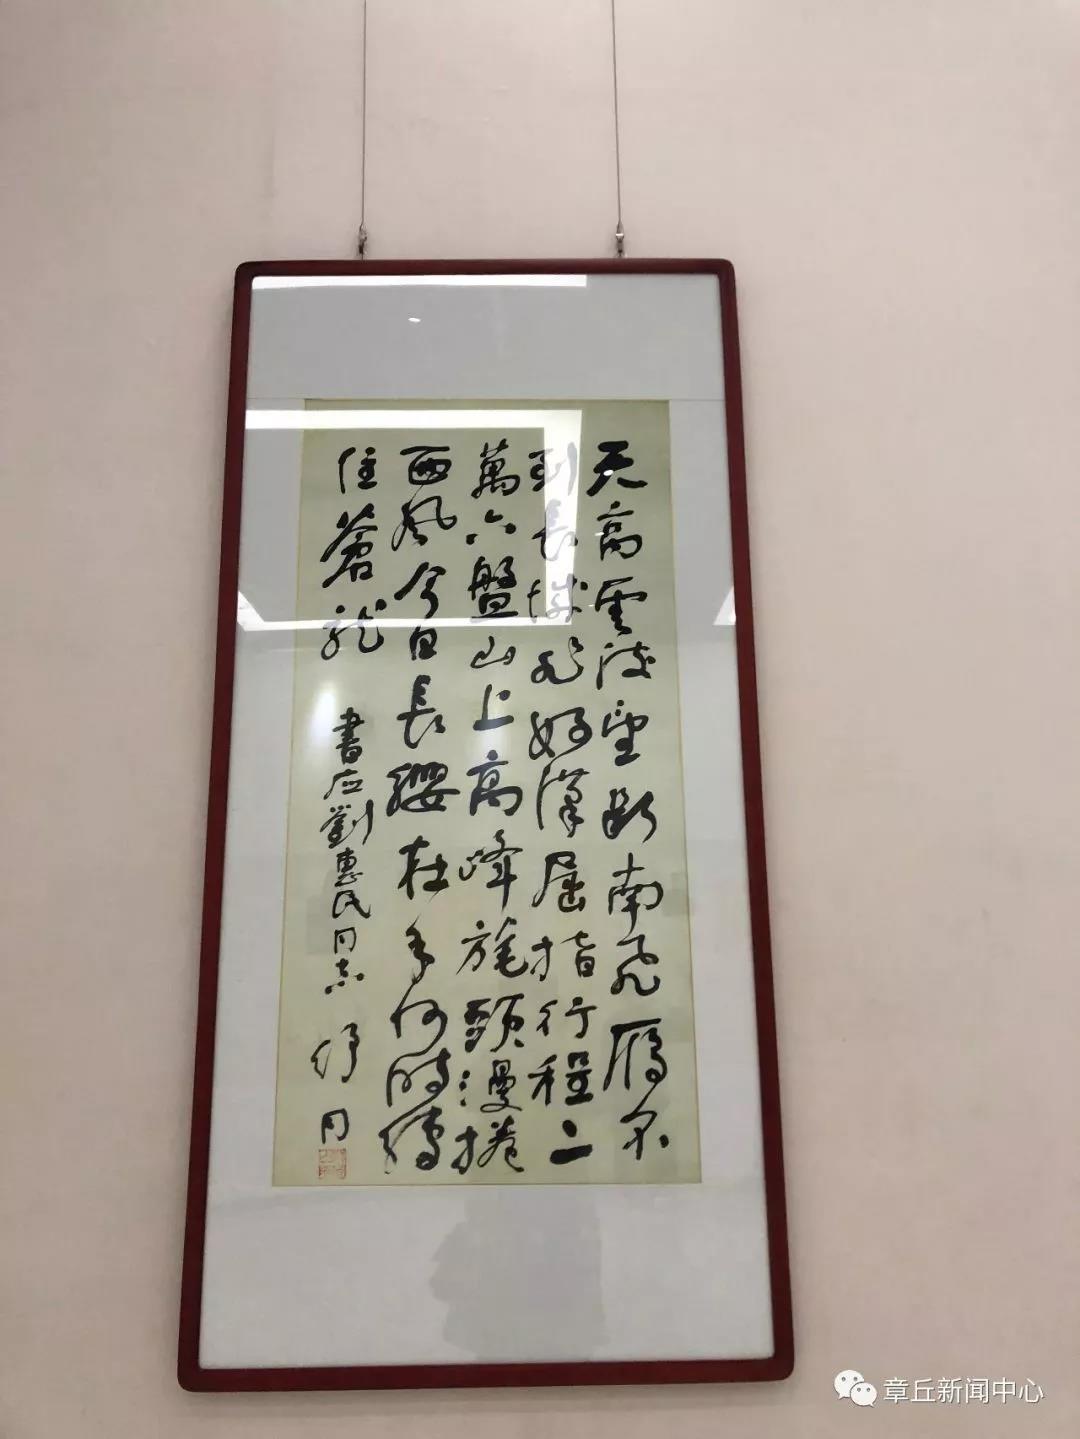 天高雲淡望斷南飛雁不
到長城非好漢屈指行程二
萬六盤山上高峰旄頭漫捲
西風今日長纓在手何時縛
住蒼龍
書应劉惠民同志
舒同
章丘新闻中心